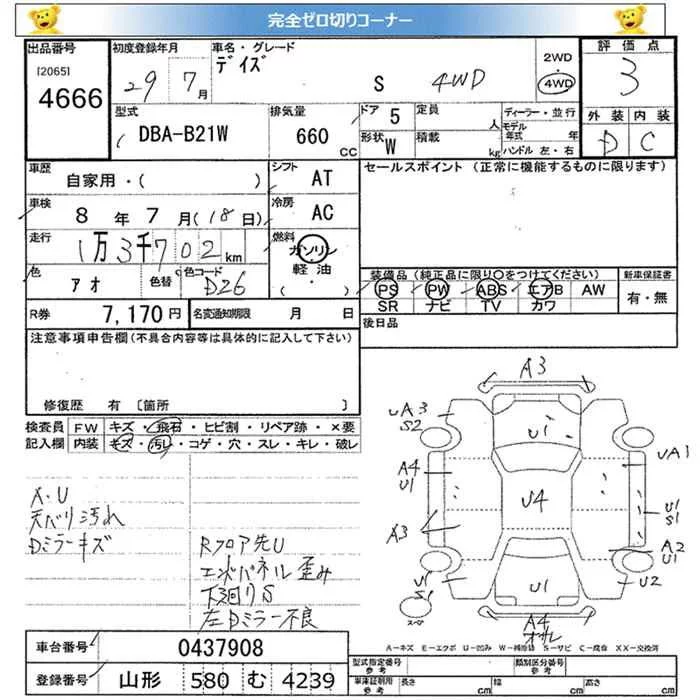 完全ゼロ切りコーナー
出品番号
[2065]
4666
初度登録年月
29 7月
車名・グレード
デイズ S 4WD
2WD
・
4WD
評価点
3
外装 内装
D C
型式
DBA-B21W
排気量
660 CC
ドア 5
形状 W
定員 人
積載 kg
ディーラー・並行
モデル年式 年
ハンドル 左・右
車歴
自家用・( )
シフト AT
セールスポイント (正常に機能するものに限ります)
車検
8年7月(18日)
冷房 AC
走行
1万3千702km
燃料
ガソリン
軽油
(・)
色 アオ 色替 色コード D26
装備品 (純正品に限り○をつけてください)
PS PW ABS エアB AW
SR ナビ TV カワ
新車保証書
有・無
R券 7,170円 名変通知期限 月 日
後日品
注意事項申告欄(不具合内容等は具体的に記入して下さい)
修復歴 有 〔箇所 〕
検査員記入欄
FW キズ・飛石・ヒビ割・リペア跡・×要
内装 キズ・汚レ・コゲ・穴・スレ・キレ・破レ
A・U
天バリ汚れ
Dミラーキズ
Rフロア先U
エンドパネル歪み
下廻りS
左Dミラー不良
A3
UA3
S2
U1
UA1
A4
U1
U4
U1
S1
A3
A2
U1
U1
S1
U1
U2
スペア
A4
オサレ
A=キズ E=エクボ U=凹み W=補修跡 S=サビ C=腐食 XX=交換済
車台番号 0437908
登録番号 山形 580 む 4239
型式指定番号 参考
類別区分番号 参考
車庫証明用 参考
長さ cm 幅 cm 高さ cm